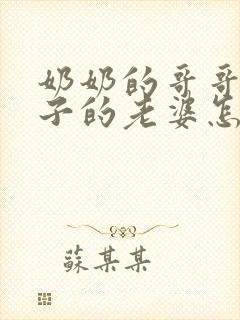 奶奶的哥哥
子的老婆怎
蘇某某